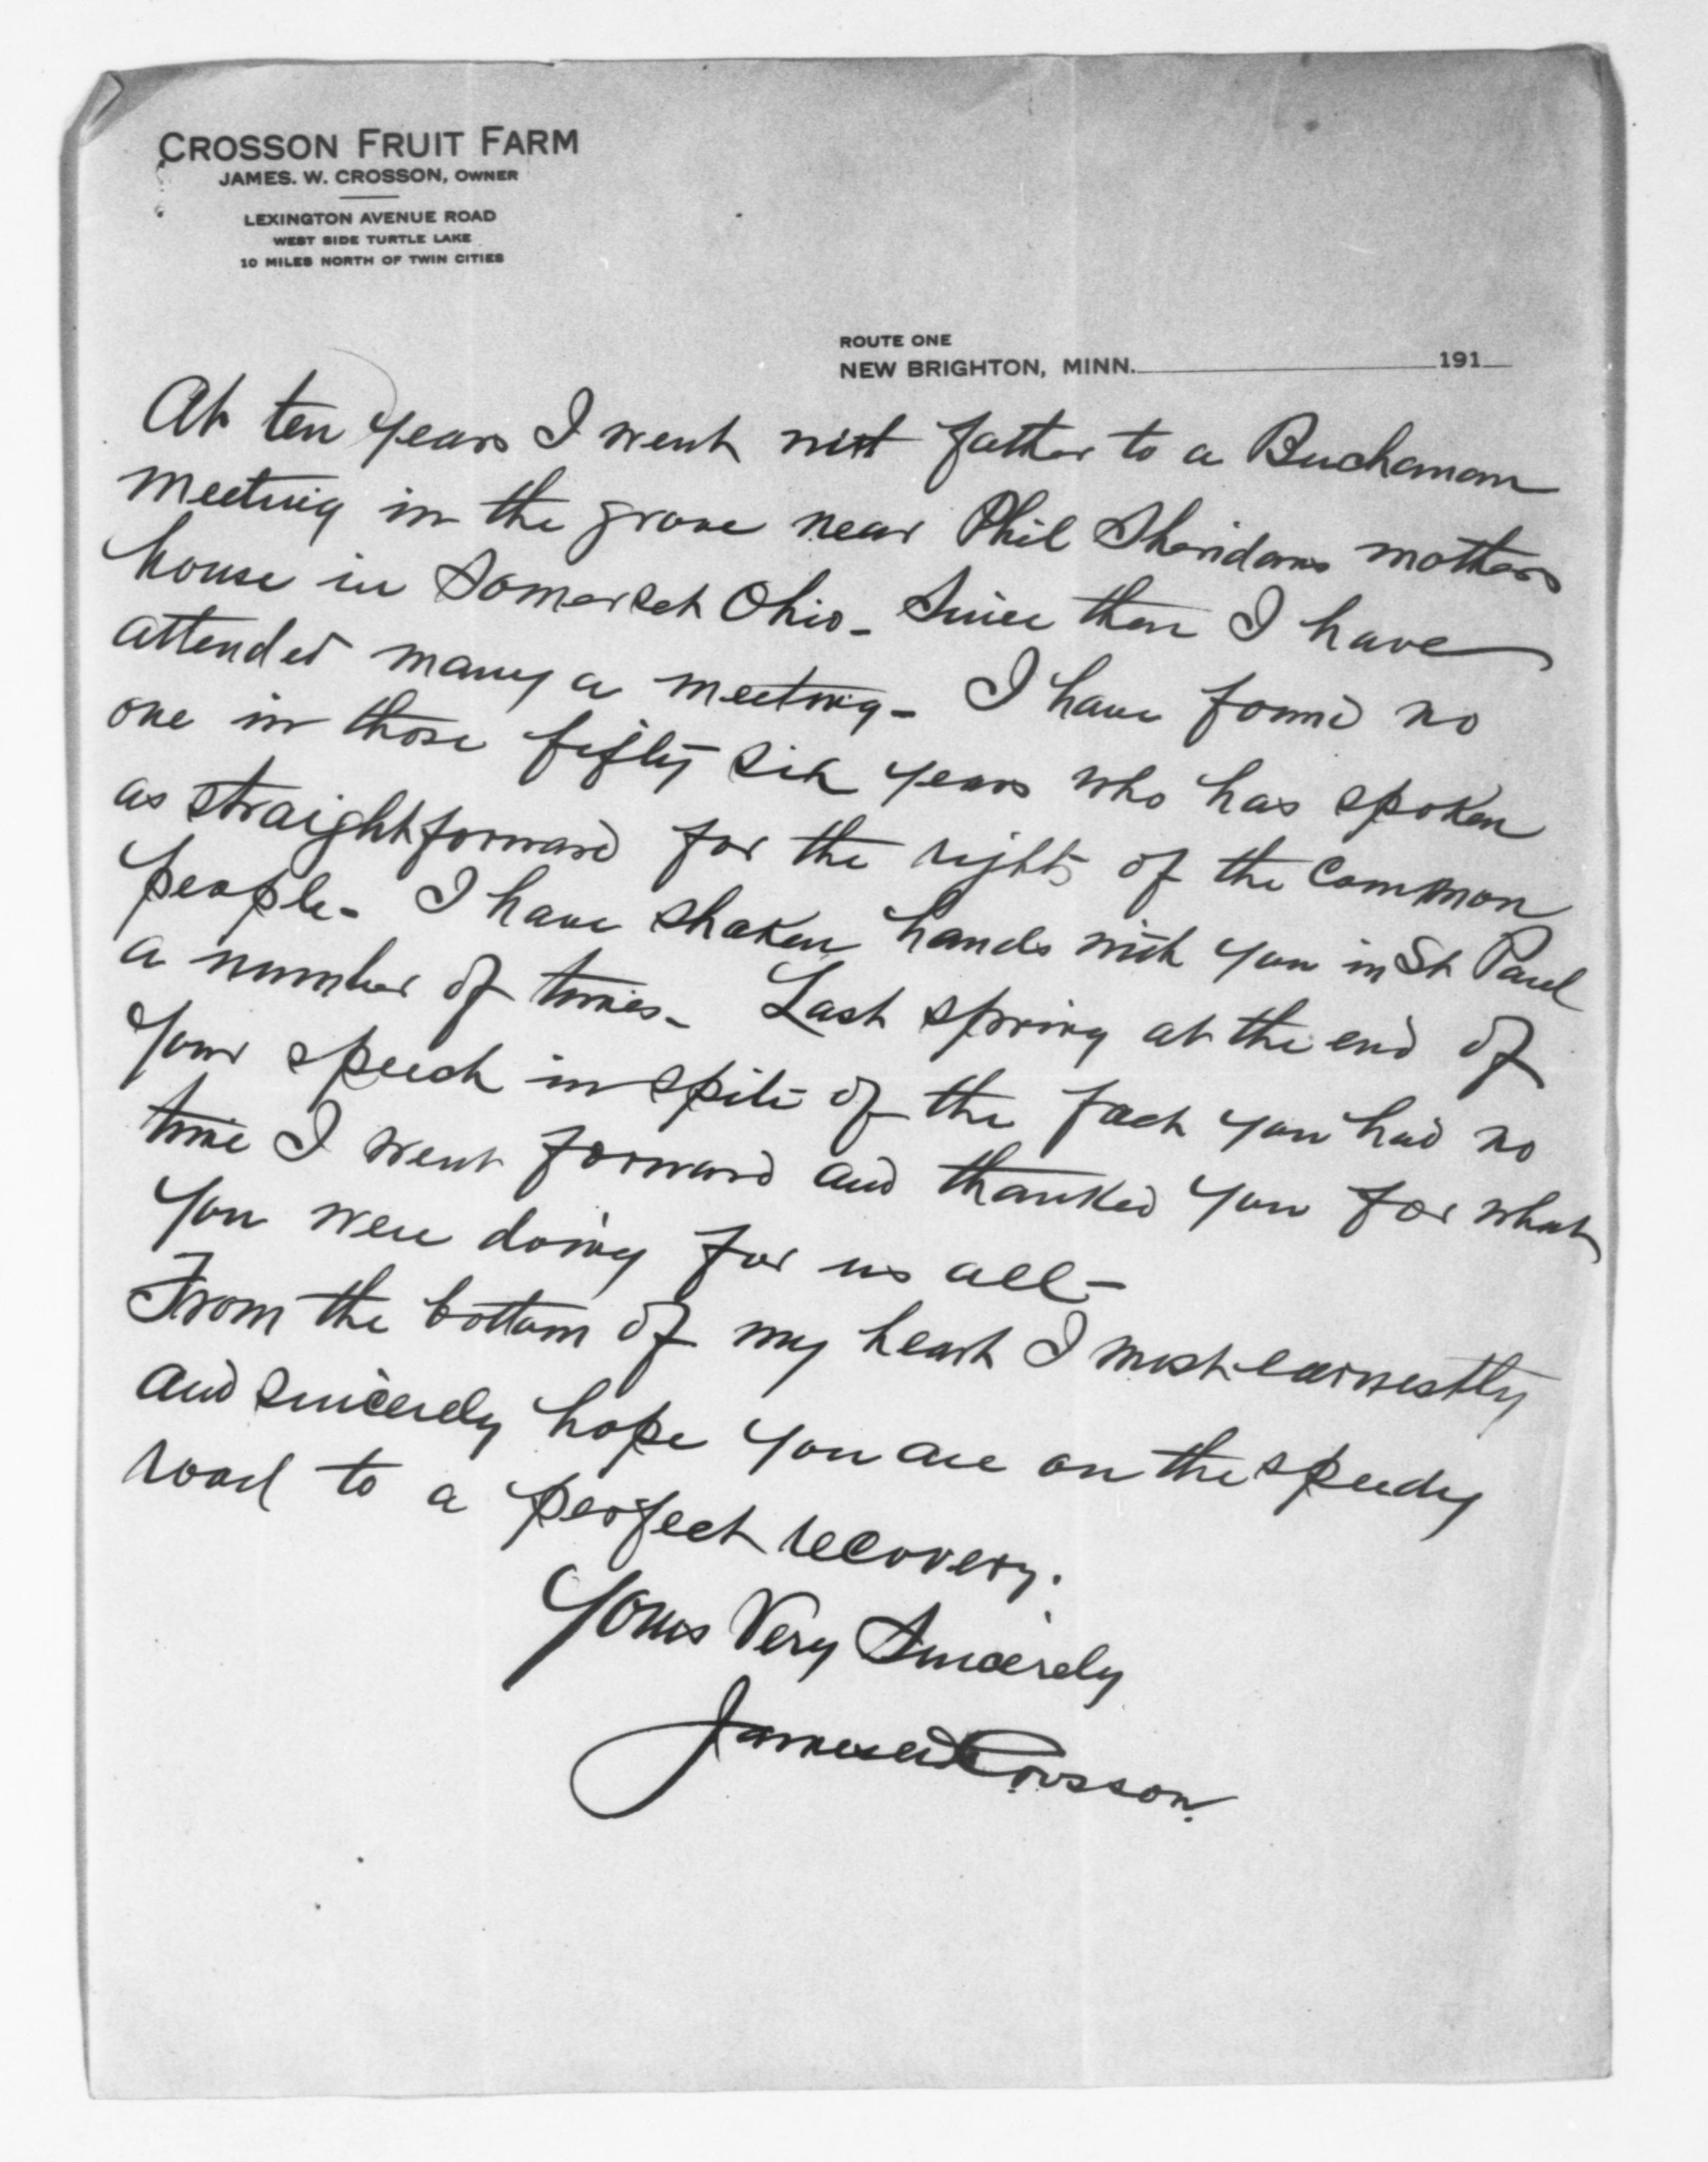 CROSSON FRUIT FARM
JAMES. W. CROSSON, OWNER
LEXINGTON AVENUE ROAD
WEST SIDE TURTLE LAKE
10 MILES NORTH OF TWIN CITIES
ROUTE ONE
NEW BRIGHTON, MINN. 191
At ten years I went with father to a Buchanan
meeting in the grove near Phil Sheridans mothers
house in Somerset Ohio - Since then I have
attended many a meeting - I have found no
one in those fifty six years who has spoken
as straightforward for the rights of the common
people - I have shaken hands with you in St Paul
a number of times - Last spring at the end of
your speech in spite of the fact you had no
time I went forward and thanked you for what
you were doing for us all -
From the bottom of my heart I most earnestly
and sincerely hope you are on the speedy
road to a perfect recovery.
Yours Very Sincerely
James W Crosson.